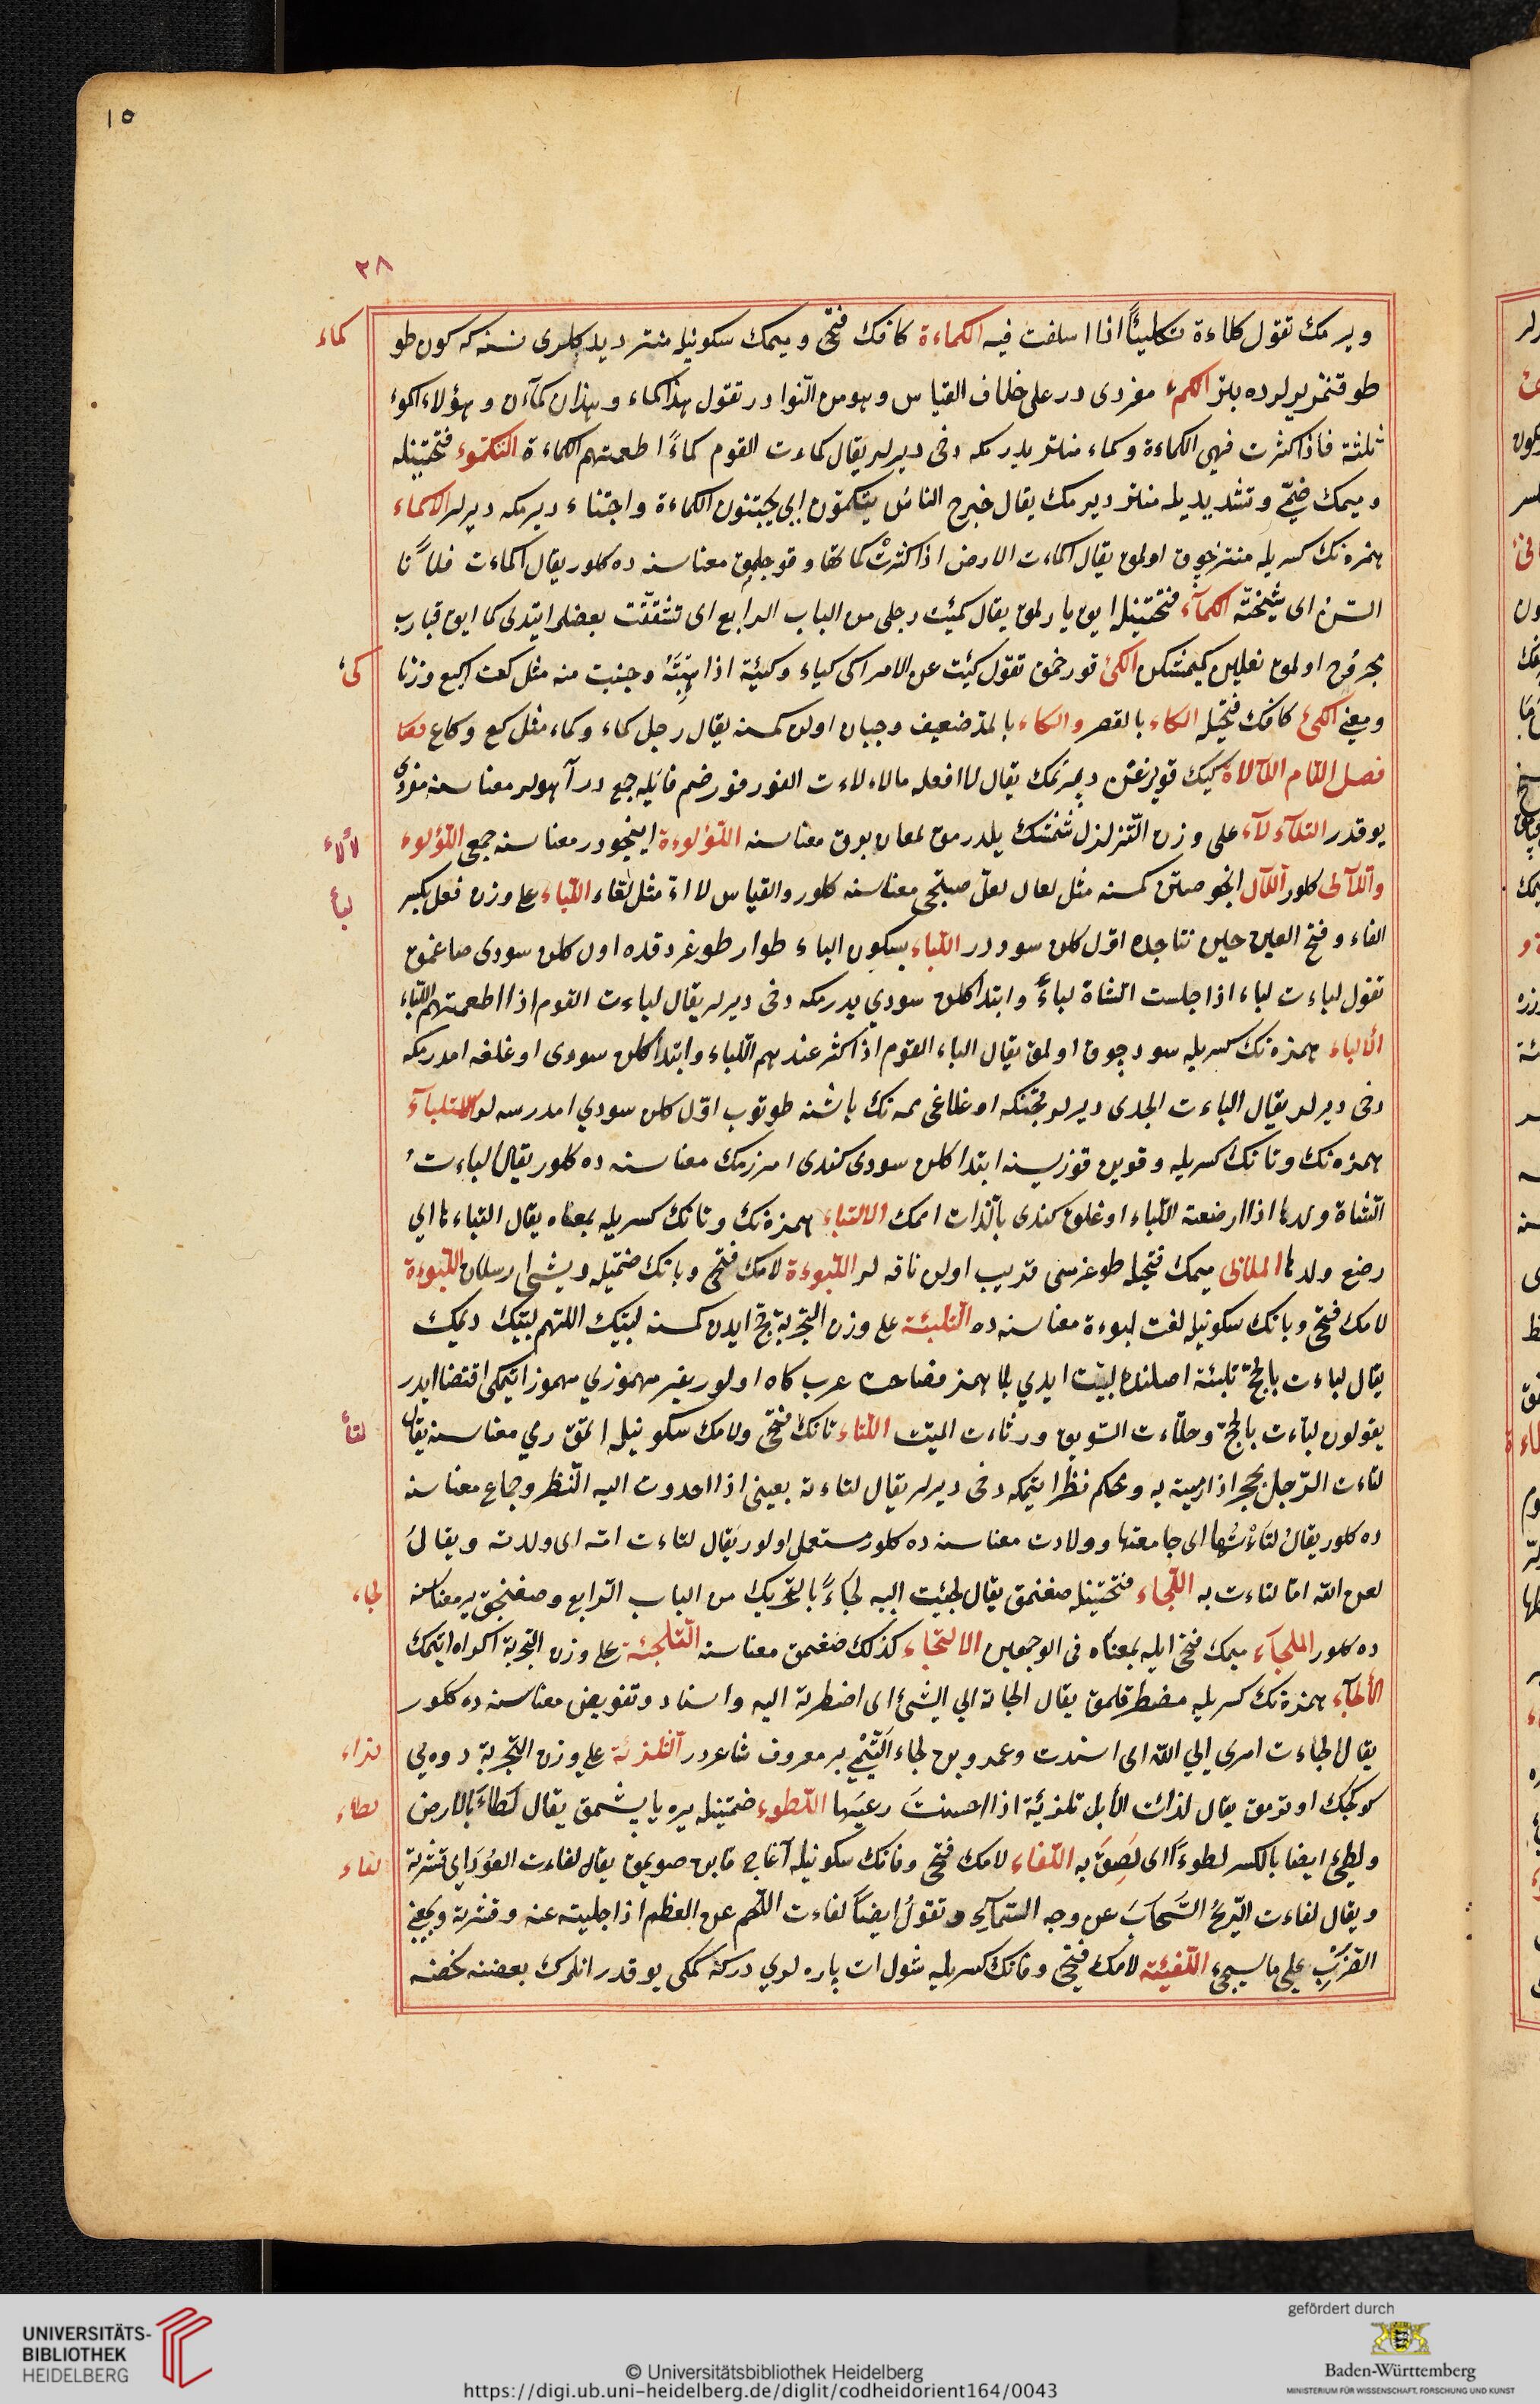 ١٥
٢٨
ويرمك تقول كلاءة تكليئاً اذا اسلفت فيه الكماءة كافك فتحى وميمك سكونيله منتر ديدكلرى نسنه كه كون طو
طوقنمز يرلرده بتر الكمء مفردى در على خلاف القياس وهو من النوادر تقول هذا كماء وهذان كمآن وهؤلاء اكمؤ
ثلثة فاذا كثرت فهى الكماءة وكماء منتر يدرمكه دخى ديرلر يقال كماءت القوم كماءً اطعمتهم الكماءة التكموء فتحتينله
وميمك ضمى وتشديديله منتر ديرمك يقال خرج الناس يتكمؤن اى يجتنون الكماءة واجتناء ديرمكه ديرلر الاكماء
همزه نك كسريله منتر چوق اولمق يقال اكماءت الارض اذا كثرت كماتها وقوجلمق معناسنه ده كلور يقال اكماءت فلاناً
السن اى شيخته الكمآء فتحتينله ايق يارلمق يقال كمئت رجلى من الباب الرابع اى تشققت بعضلر ايتدى كما ايق قبارب
مجروح اولمق نعلين كيمنسكن الكئ قورخمق تقول كئت عن الامر اكى كياء وكيئة اذا هبته وجبنت منه مثل كعت اكيع وزنا
ومعنى الكئ كافك فتحيله الكاء بالقصر والكاء بالمد ضعيف وجبان اولن كمسنه يقال رجل كاء وكماء مثل كع وكاع
فصل اللام اللآلاة كيك قويرغن دپرتمك يقال لا افعله ما لاءلاءت الفور فور ضم فايله جمع در آهولر معناسنه مفردى
يوقدر التلآءلآء على وزن التزلزل شمشك يلدرمق لمعان برق معناسنه اللؤلوءة اينجودر معناسنه جمعى اللؤلوء
واللآلى كلور اللآل انجو صاتن كمسنه مثل لعال لعل صاتجى معناسنه كلور والقياس لااة مثل لعاء اللباء على وزن فعل بكسر
الفاء وفتح العين حين نتاجده اول كلن سوددر اللباء بسكون الباء طوار طوغردقده اول كلن سودى صاغمق
تقول لباءت لباء اذا حلبت الشاة لباءً وابتدا كلن سودى يدرمكه دخى ديرلر يقال لباءت القوم اذا اطعمتهم اللباء
الألباء همزه نك كسريله سود چوق اولمق يقال الباء القوم اذا كثر عندهم اللباء وابتدا كلن سودى اوغلنه امدرمكه
دخى ديرلر يقال الباءت الجدى ديرلر قچنكه اوغلاغى ممه نك باشنه طوتوب اول كلن سودي امدرسه لر الالتبآء
همزه نك وتانك كسريله وقوين قوزيسنه ابتدا كلن سودى كندى امزرمك معناسنه ده كلور يقال الباءت
الشاة ولدها اذا ارضعته اللباء اوغلق كندى بالذات اممك الالتباء همزه نك وتانك كسريله بمعناه يقال التباءها اي
رضع ولدها الملبئ ميمك فتحيله طوغرمسى قريب اولن ناقه لر اللبوءة لامك فتحى وبانك ضميله ديشى ارسلان اللبوءة
لامك فتحى وبانك سكونيله لغت لبوءة معناسنه ده التلبئة على وزن التجربة حج ايدن كمسنه لبيك اللهم لبيك ديمك
يقال لباءت بالحج تلبئة اصلنده لبيت ايدى بلا همز فصاحت عرب كاه اولور غير مهموزي مهموز ايتمكى اقتضا ايدر
يقولون لباءت بالحج وحلاءت السويق ورثاءت الميت اللتاء تانك فتحى ولامك سكونيله اتمق رمي معناسنه يقال
لتاءت الرجل بحجر اذا رميته به ومحكم نظر ايتمكه دخى ديرلر يقال لتاءته بعينى اذا احددت اليه النظر وجماع معناسنه
ده كلور يقال لتاءتها اى جامعتها وولادت معناسنه ده كلور مستعمل اولور يقال لتاءت امه اى ولدته ويقال
لعن الله اما لتاءت به اللجاء فتحتينله صغنمق يقال لجئت اليه لجاءً بالتحريك من الباب الرابع وصغنجق ير معناسنه
ده كلور الملجآء ميمك فتحى ايله بمعناه فى الوجهين الالتجاء كذلك صغنمق معناسنه التلجئة على وزن التجربة اكراه ايتمك
الألجآء همزه نك كسريله مضطر قلمق يقال الجاءته الي الشئ اى اضطرته اليه واسناد وتفويض معناسنه ده كلور
يقال الجاءت امرى الي الله اى اسندت وعمرو بن لجاء التيمى بر معروف شاعردر التلزئة على وزن التجربة دوه يى
كوكجك اوترمق يقال لزاءت الأبل تلزئة اذا احسنت رعيتها اللطوء ضمتينله يره ياپشمق يقال لطاء بالارض
ولطئ ايضا بالكسر لطوءاً اى لصق به اللفاء لامك فتحى وفانك سكونيله آغاج قابن صويمق يقال لفاءت العود اى قشرته
ويقال لفاءت الريح السحاب عن وجه السماء وتقول ايضاً لفاءت اللحم عن العظم اذا جليته عنه وقشرته وبمعنى
الضرب على ما سيجئ اللفيئة لامك فتحى وفانك كسريله شول ات پاره لري دركه كمكى يوقدر انلرك بعضنه نحضه
كماء
كئ
لألاء
لبأ
لتأ
لجاء
لزاء
لطاء
لفاء
UNIVERSITÄTS-
BIBLIOTHEK
HEIDELBERG
© Universitätsbibliothek Heidelberg
https://digi.ub.uni-heidelberg.de/diglit/codheidorient164/0043
gefördert durch
Baden-Württemberg
MINISTERIUM FÜR WISSENSCHAFT, FORSCHUNG UND KUNST